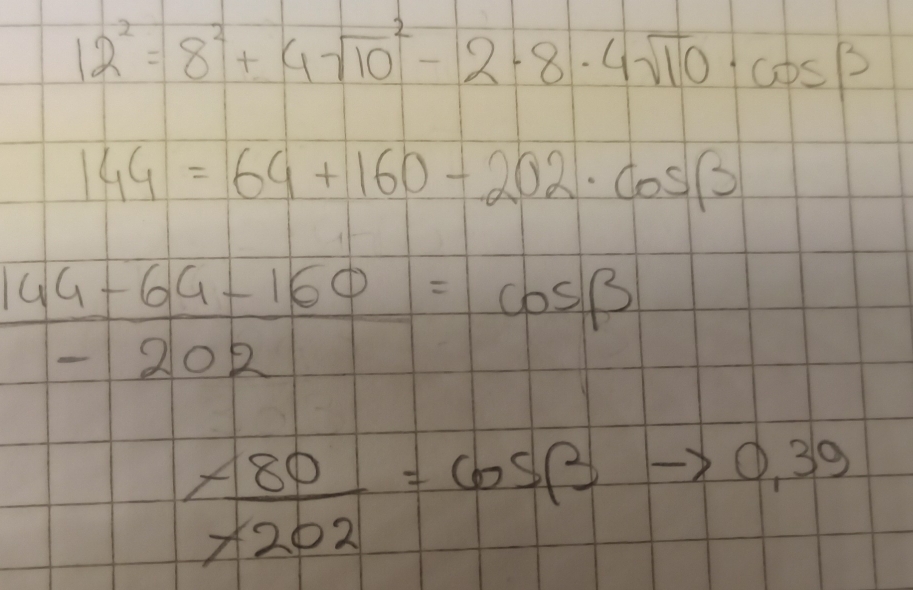 12² = 8² + 4√10² - 2·8·4√10·cosβ
144 = 64 + 160 - 202·cosβ
144 - 64 - 160 = cosβ
- 202
-80 = cosβ → 0,39
-202